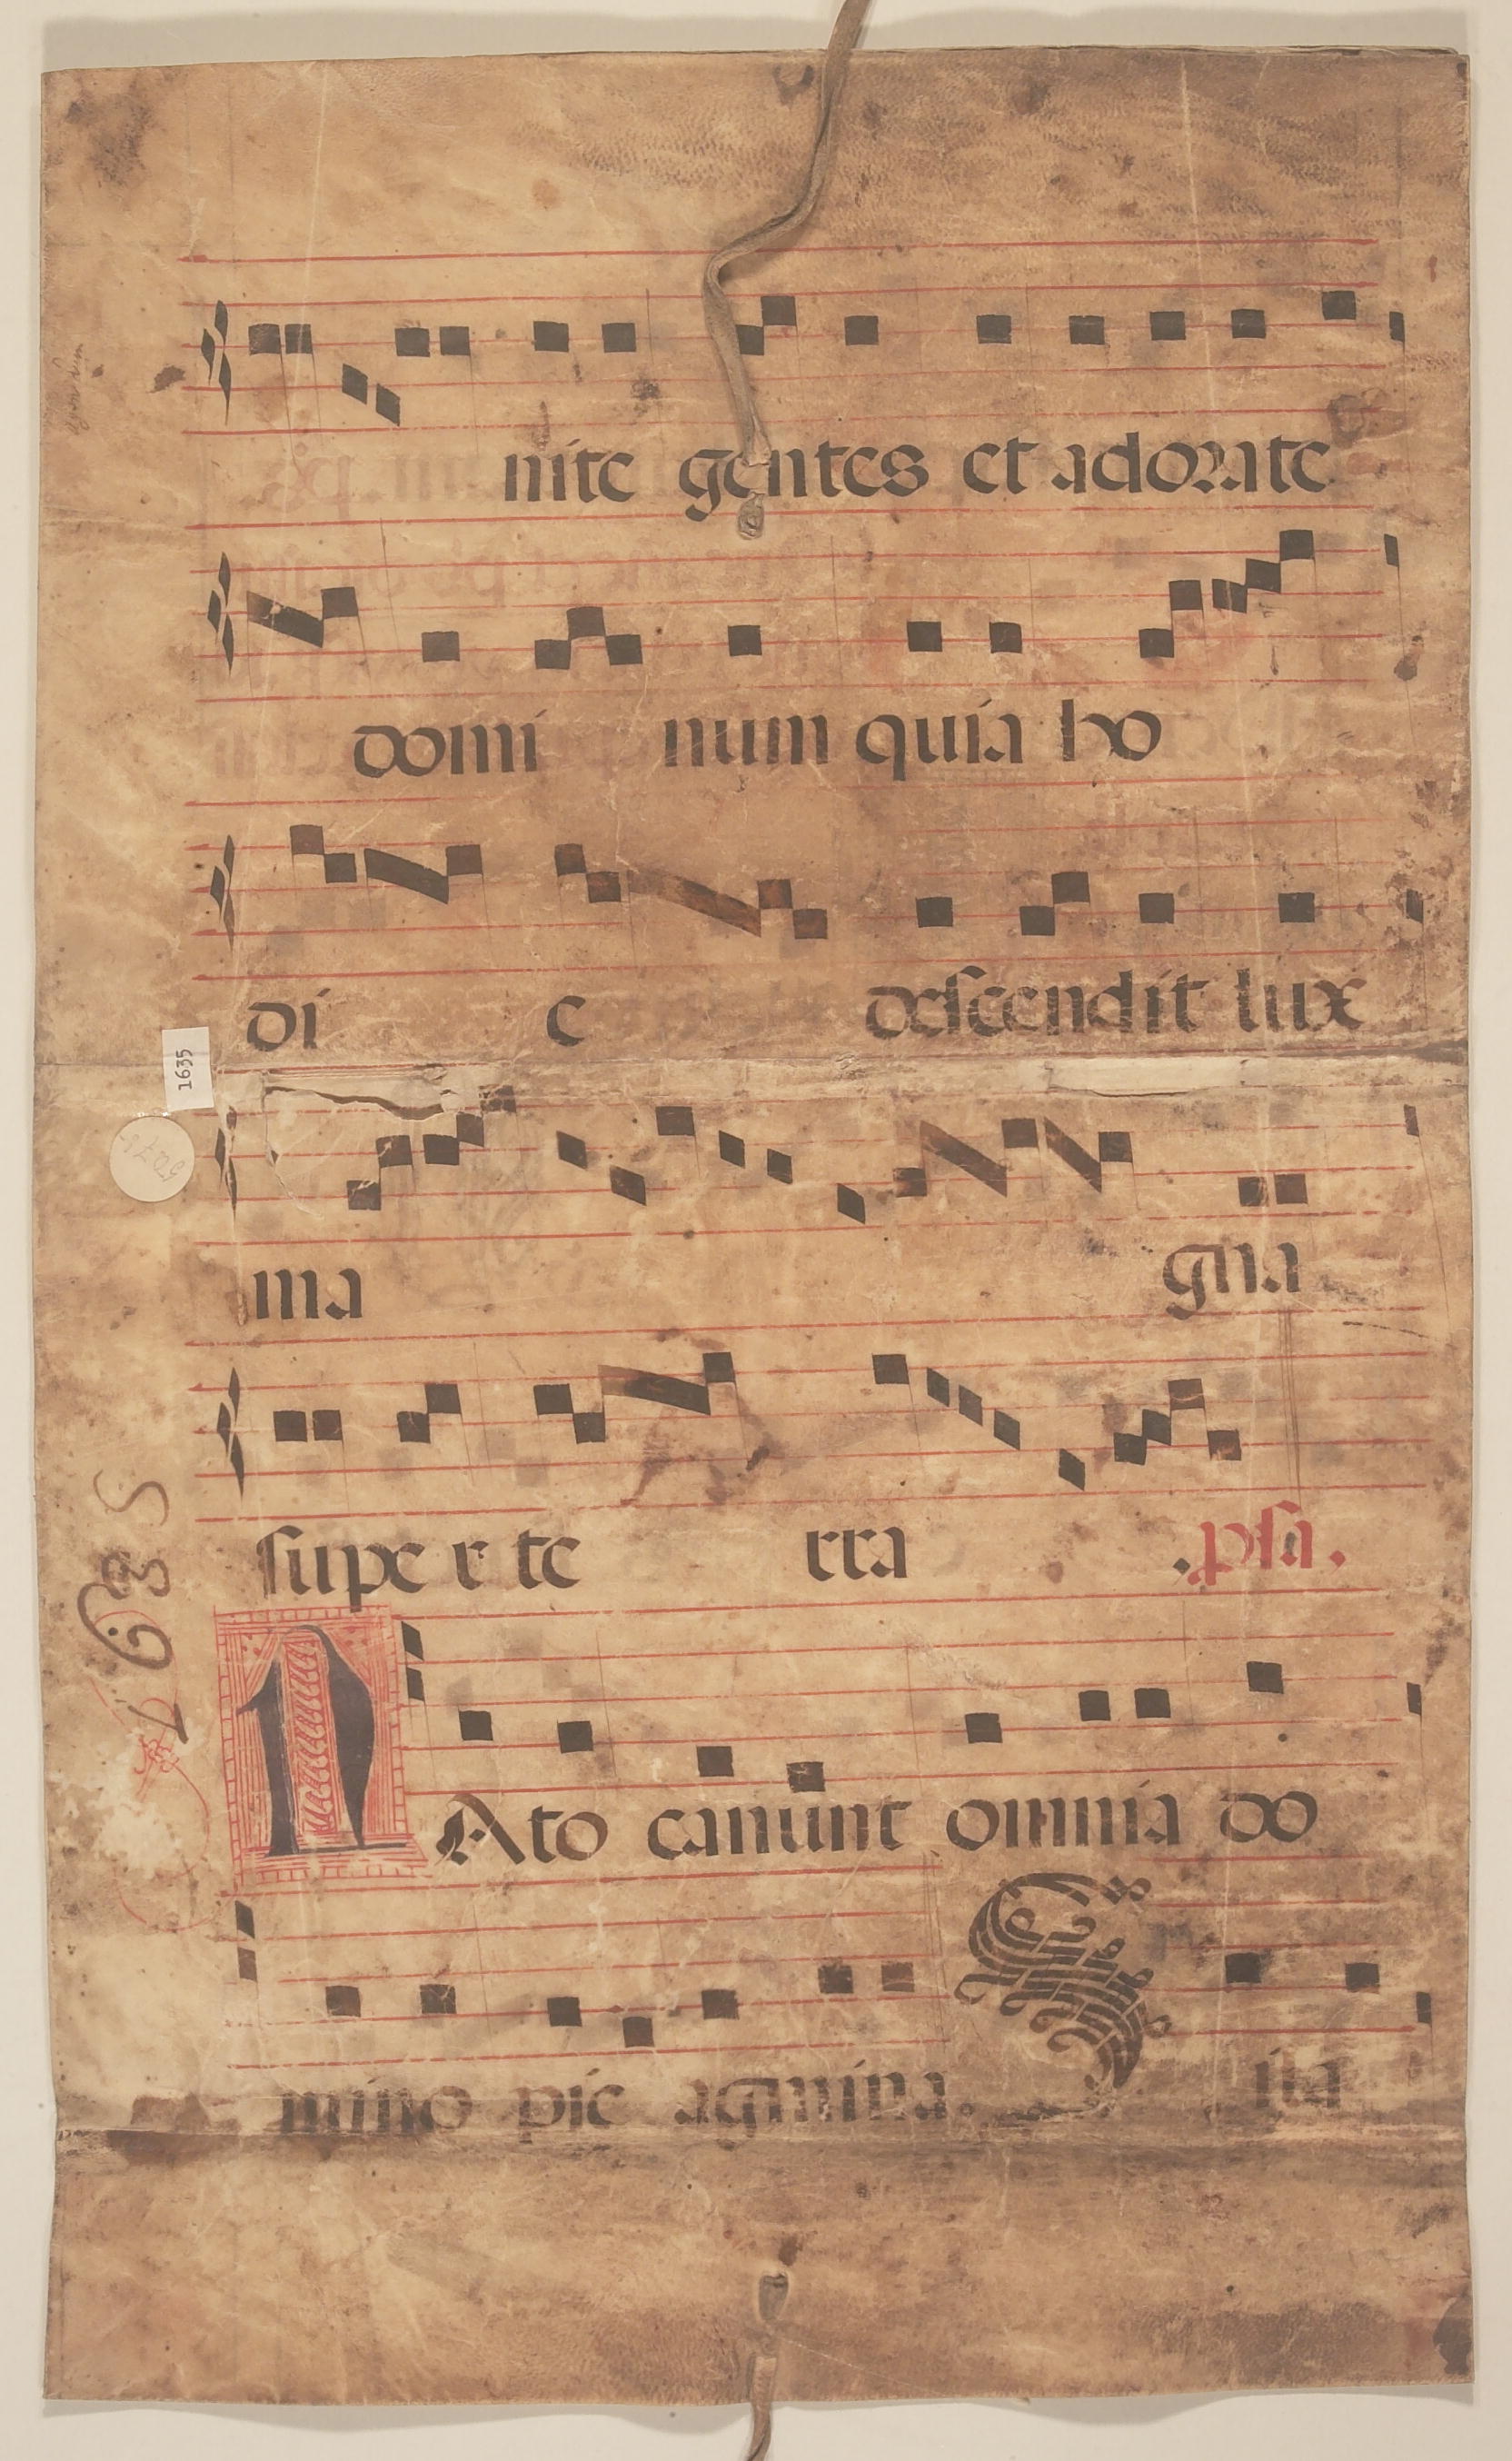 nite gentes et adorate
domi num quia ho
di e descendit lux
ma gna
supe r te rra .psa.
NAto canunt omnia do
mino pie agmina. S ila
1635